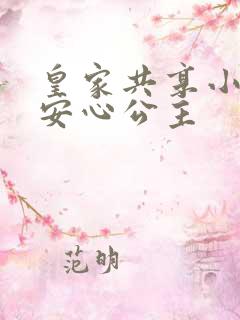 皇家共享小
安心公主
范明